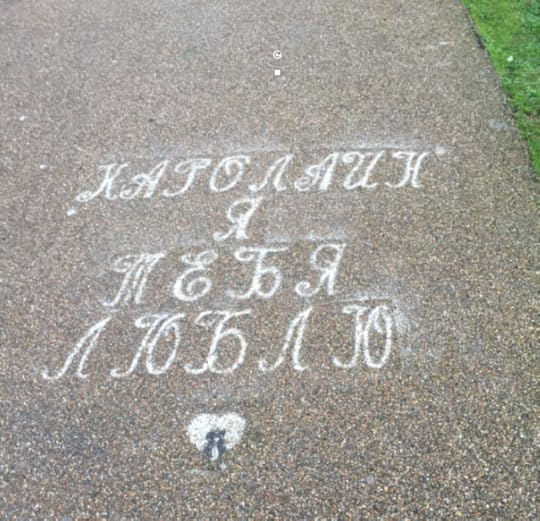 КАРОЛАИН
Я
ТЕБЯ
ЛЮБЛЮ